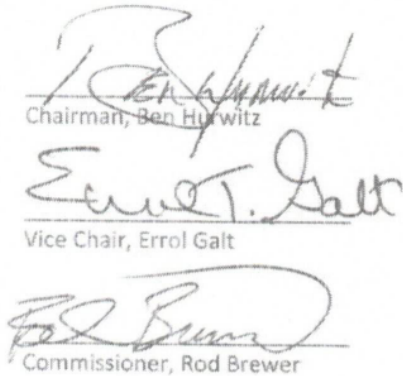 Ben Hurwitz
Chairman, Ben Hurwitz
Errol T. Galt
Vice Chair, Errol Galt
Commissioner, Rod Brewer